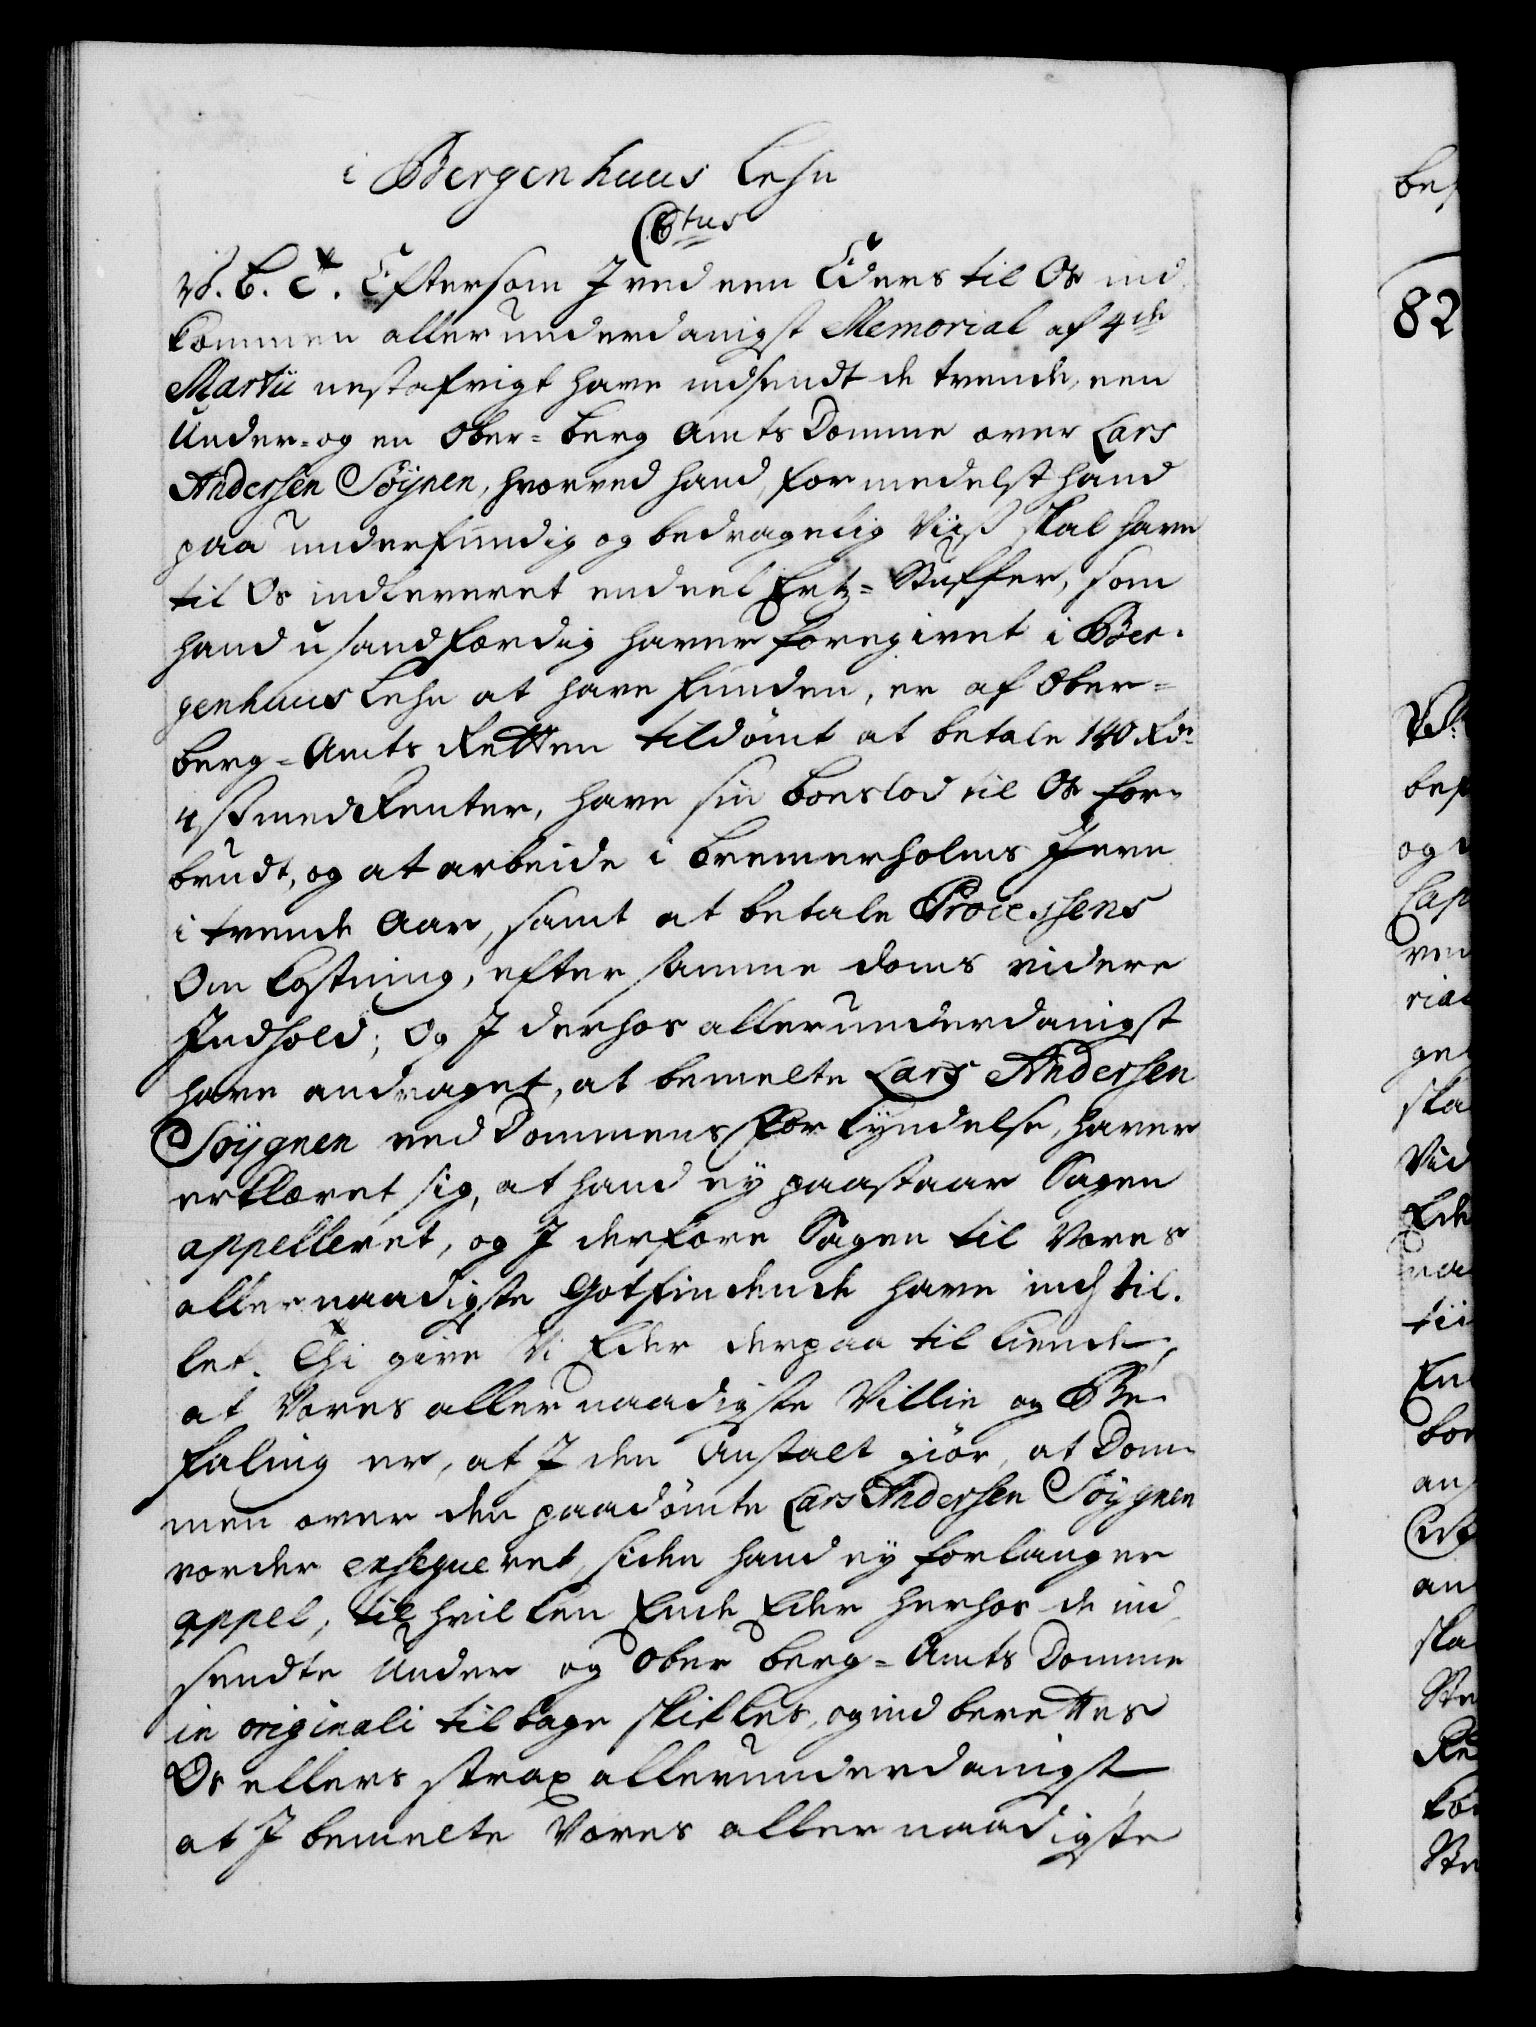 i Bergenhuus Lehn
Ctus
V. G. T. Eftersom I ved een Eders til Os ind
kommen allerunderdanigst Memorial af 4de
Martii nestafvigt have indsendt de trende, een
Under- og en Ober-Berg Amts Domme over Lars
Andersen Söÿnen, hvorved hand, formedelst hand
paa underfundig og bedragelig Viiß skal have
til Os indleveret endeel Ertz-Stuffer, som
hand usandfærdig haver foregivet i Ber-
genhuus Lehn at have funden, er af Ober-
berg-Amts Retten tildömt at betale 140 Rdr
4 ß med Renter, have sin Boeslod til Os for-
brudt, og at arbeide i Bremerholms Jern
i trende Aar, samt at betale Processens
Omkostning, efter samme doms videre
Indhold; Og I derhos allerunderdanigst
have andraget, at bemelte Lars Andersen
Söÿgnen ved Dommens Forkÿndelse, haver
erklæret sig, at hand eÿ paastaar Sagen
appelleret, og I derfore Sagen til Vores
allernaadigste Gotfindende have indstil-
let. Thi give Vi Eder derpaa tilkiende,
at Vores allernaadigste Villie og Be-
faling er, at I den Anstalt giör, at Dom-
men over den paadömte Lars Andersen Söÿgnen
vorder exseqveret, siden hand eÿ forlanger
appel; til hvilken Ende Eder herhos de ind-
sendte Under og Ober Berg-Amts Domme
in originali tilbage skikkes, og indberettes
Os ellers strax allerunderdanigst,
at I bemelte Vores allernaadigste
82